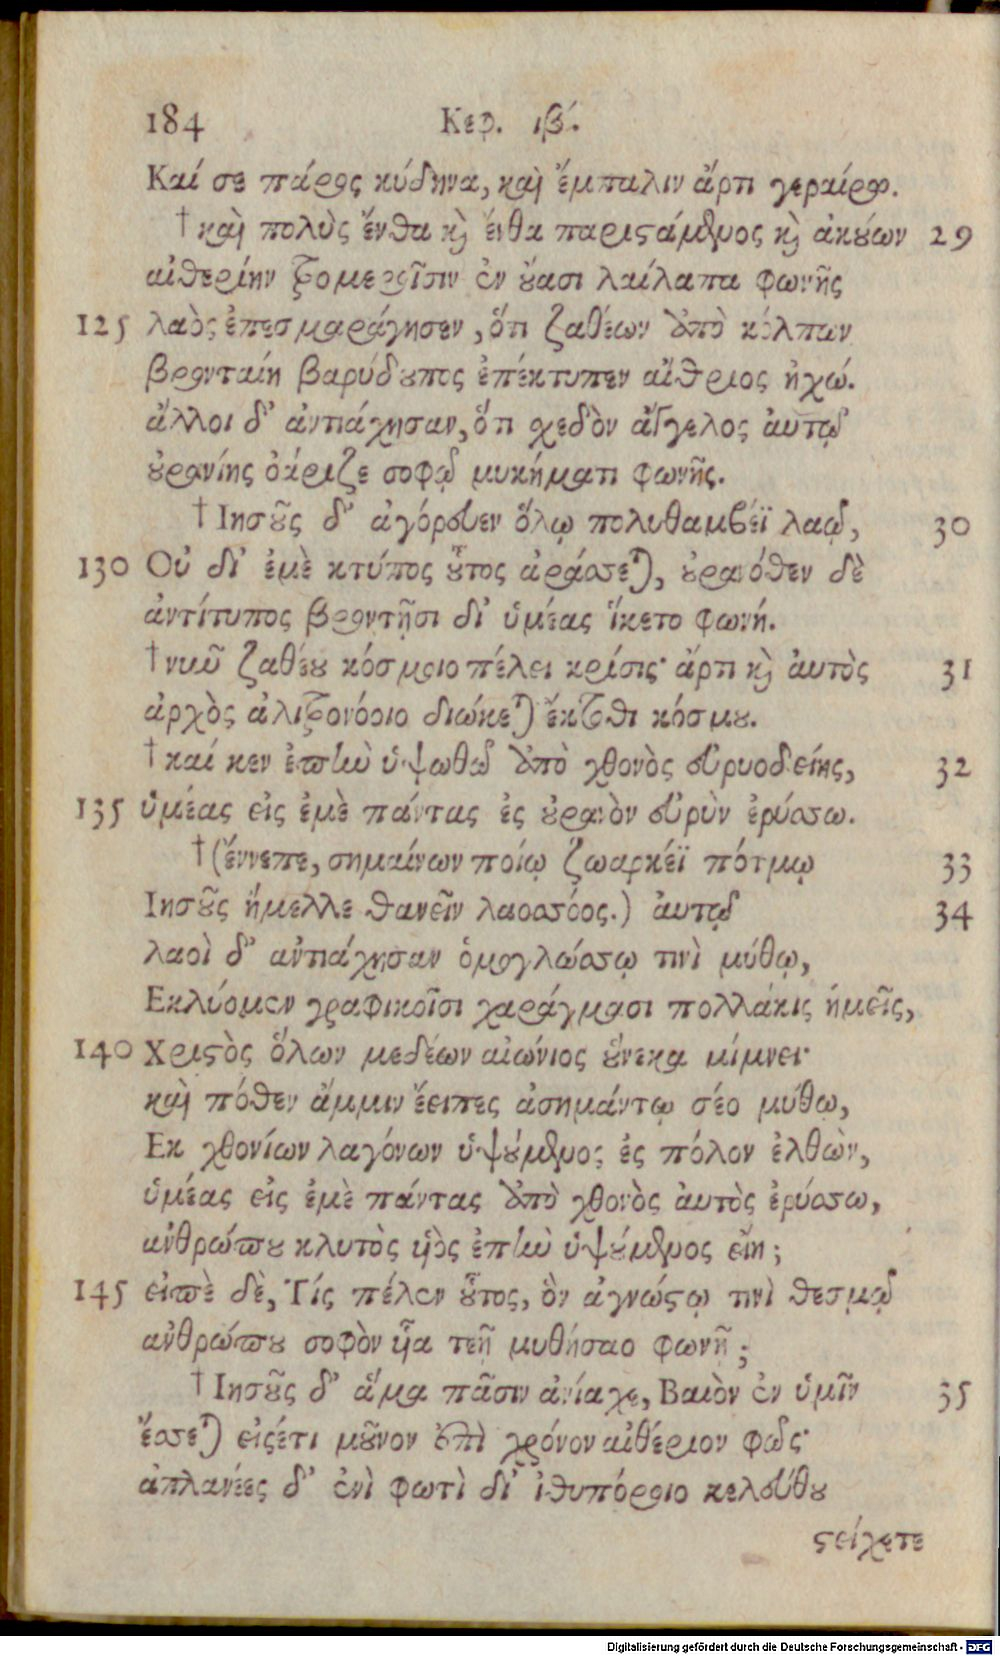 184 Κεφ. ιβ΄.
Καί σε πάρος κύδηνα, καὶ ἔμπαλιν ἄρτι γεραίρω.
† καὶ πολὺς ἔνθα κὶ ἔνθα παριστάμενος κὶ ἀκούων 29
αἰθερίην τρομεροῖσιν ἐν οὔασι λαίλαπα φωνῆς
125 λαὸς ἐπεσμαράγησεν, ὅτι ζαθέων ἀπὸ κόλπων
βρονταίη βαρύδουπος ἐπέκτυπεν αἴθριος ἠχώ.
ἄλλοι δ᾽ ἀντιάχησαν, ὅτι σχεδὸν ἄγγελος αὐτῷ
οὐρανίης ὀάριζε σοφῷ μυκήματι φωνῆς.
† Ιησοῦς δ᾽ ἀγόρευεν ὅλῳ πολυθαμβέϊ λαῷ, 30
130 Οὐ δι᾽ ἐμὲ κτύπος οὗτος ἀράσσεται, οὐρανόθεν δὲ
ἀντίτυπος βροντῇσι δι᾽ ὑμέας ἵκετο φωνή.
† νῦν ζαθέου κόσμοιο πέλει κρίσις· ἄρτι κὶ αὐτὸς 31
ἀρχὸς ἀλιτρονόοιο διώκεται ἔκτοθι κόσμου.
† καί κεν ἐπὴν ὑψωθῶ ἀπὸ χθονὸς εὐρυοδείης, 32
135 ὑμέας εἰς ἐμὲ πάντας ἐς οὐρανὸν εὐρὺν ἐρύσσω.
† (ἔννεπε, σημαίνων ποίῳ ζωαρκέϊ πότμῳ 33
Ιησοῦς ἤμελλε θανεῖν λαοσσόος.) αὐτῷ 34
λαοὶ δ᾽ ἀντιάχησαν ὁμογλώσσῳ τινὶ μύθῳ,
Εκλύομεν γραφικοῖσι χαράγμασι πολλάκις ἡμεῖς,
140 Χριστὸς ὅλων μεδέων αἰώνιος οὕνεκα μίμνει·
καὶ πόθεν ἄμμιν ἔειπες ἀσημάντῳ σέο μύθῳ,
Εκ χθονίων λαγόνων ὑψούμενος ἐς πόλον ἐλθὼν,
ὑμέας εἰς ἐμὲ πάντας ἀπὸ χθονὸς αὐτὸς ἐρύσσω,
ἀνθρώπου κλυτὸς υἱὸς ἐπὴν ὑψούμενος εἴη;
145 εἰπὲ δὲ, Τίς πέλεν οὗτος, ὃν ἀγνώστῳ τινὶ θεσμῷ
ἀνθρώπου σοφὸν υἷα τεῇ μυθήσαο φωνῇ;
† Ιησοῦς δ᾽ ἅμα πᾶσιν ἀνίαχε, Βαιὸν ἐν ὑμῖν 35
ἔσσεται εἰσέτι μοῦνον ἐπὶ χρόνον αἰθέριον φῶς·
ἀπλανέες δ᾽ ἐνὶ φωτὶ δι᾽ ἰθυπόροιο κελεύθου
στείχετε
Digitalisierung gefördert durch die Deutsche Forschungsgemeinschaft - DFG